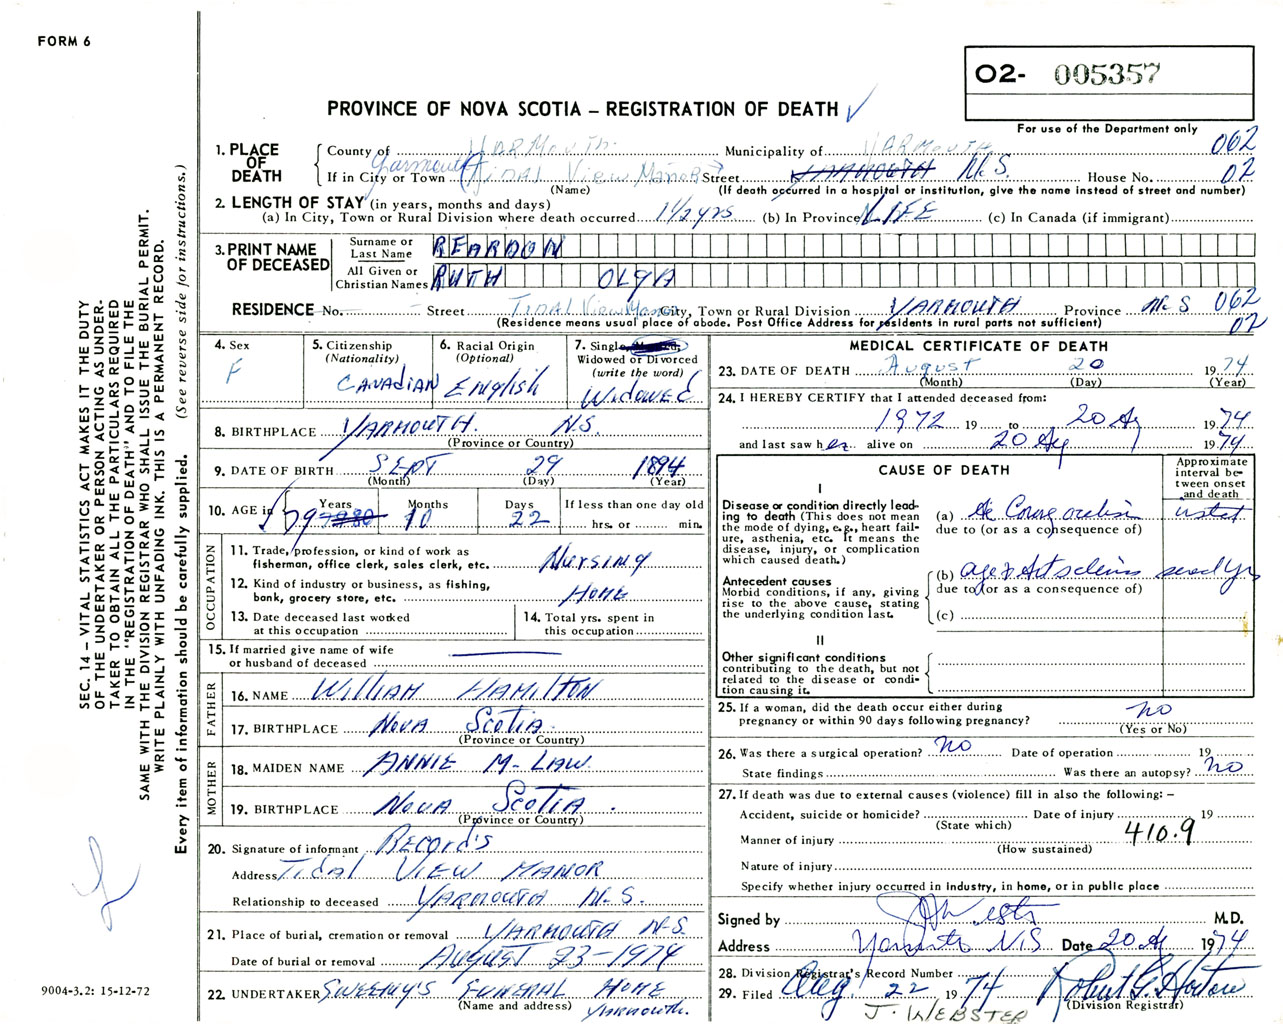 FORM 6
O2- 005357
PROVINCE OF NOVA SCOTIA – REGISTRATION OF DEATH ✓
For use of the Department only
1. PLACE OF DEATH
County of YARMOUTH Municipality of YARMOUTH 062
If in City or Town Yarmouth (Tidal View Manor) Street YARMOUTH N.S. House No. 02
(Name) (If death occurred in a hospital or institution, give the name instead of street and number)
2. LENGTH OF STAY (in years, months and days)
(a) In City, Town or Rural Division where death occurred 1 1/2 yrs (b) In Province LIFE (c) In Canada (if immigrant)
3. PRINT NAME OF DECEASED
Surname or Last Name REARDON
All Given or Christian Names RUTH OLGA
RESIDENCE No. — Street Tidal View Manor City, Town or Rural Division YARMOUTH Province N.S 062
(Residence means usual place of abode. Post Office Address for residents in rural parts not sufficient) 02
4. Sex
F
5. Citizenship
(Nationality)
CANADIAN
6. Racial Origin
(Optional)
English
7. Single, Married,
Widowed or Divorced
(write the word)
WIDOWED
8. BIRTHPLACE YARMOUTH. N.S.
(Province or Country)
9. DATE OF BIRTH SEPT 29 1894
(Month) (Day) (Year)
10. AGE in Years 79 Months 10 Days 22 If less than one day old
hrs. or min.
OCCUPATION
11. Trade, profession, or kind of work as
fisherman, office clerk, sales clerk, etc. Nursing
12. Kind of industry or business, as fishing,
bank, grocery store, etc. HOME
13. Date deceased last worked
at this occupation
14. Total yrs. spent in
this occupation
15. If married give name of wife
or husband of deceased
FATHER
16. NAME WILLIAM HAMILTON
17. BIRTHPLACE NOVA SCOTIA
(Province or Country)
MOTHER
18. MAIDEN NAME ANNIE M. LAW.
19. BIRTHPLACE NOVA SCOTIA.
(Province or Country)
20. Signature of informant Record's
Address Tidal VIEW MANOR
Relationship to deceased YARMOUTH N.S.
21. Place of burial, cremation or removal YARMOUTH N.S
Date of burial or removal August 23-1974
22. UNDERTAKER SWEENY'S FUNERAL HOME
(Name and address) YARMOUTH.
MEDICAL CERTIFICATE OF DEATH
23. DATE OF DEATH August 20 1974
(Month) (Day) (Year)
24. I HEREBY CERTIFY that I attended deceased from:
1972 19 to 20 Ag 1974
and last saw her alive on 20 Ag 1974
CAUSE OF DEATH
Approximate interval between onset and death
I
Disease or condition directly leading to death (This does not mean the mode of dying, e.g., heart failure, asthenia, etc. It means the disease, injury, or complication which caused death.)
(a)
due to (or as a consequence of)
Antecedent causes
Morbid conditions, if any, giving rise to the above cause, stating the underlying condition last.
(b) age &
due to (or as a consequence of)
(c)
II
Other significant conditions
contributing to the death, but not related to the disease or condition causing it.
25. If a woman, did the death occur either during
pregnancy or within 90 days following pregnancy? no
(Yes or No)
26. Was there a surgical operation? no Date of operation 19
State findings Was there an autopsy? no
27. If death was due to external causes (violence) fill in also the following: –
Accident, suicide or homicide? Date of injury 19
(State which)
Manner of injury 410.9
(How sustained)
Nature of injury
Specify whether injury occurred in industry, in home, or in public place
Signed by M.D.
Address Yarmouth N.S. Date 20 Ag 1974
28. Division Registrar's Record Number
29. Filed Aug 22 1974
(Division Registrar)
J. WEBSTER
SEC. 14 – VITAL STATISTICS ACT MAKES IT THE DUTY
OF THE UNDERTAKER OR PERSON ACTING AS UNDER-
TAKER TO OBTAIN ALL THE PARTICULARS REQUIRED
IN THE "REGISTRATION OF DEATH" AND TO FILE THE
SAME WITH THE DIVISION REGISTRAR WHO SHALL ISSUE THE BURIAL PERMIT.
WRITE PLAINLY WITH UNFADING INK. THIS IS A PERMANENT RECORD.
Every item of information should be carefully supplied. (See reverse side for instructions.)
9004-3.2: 15-12-72